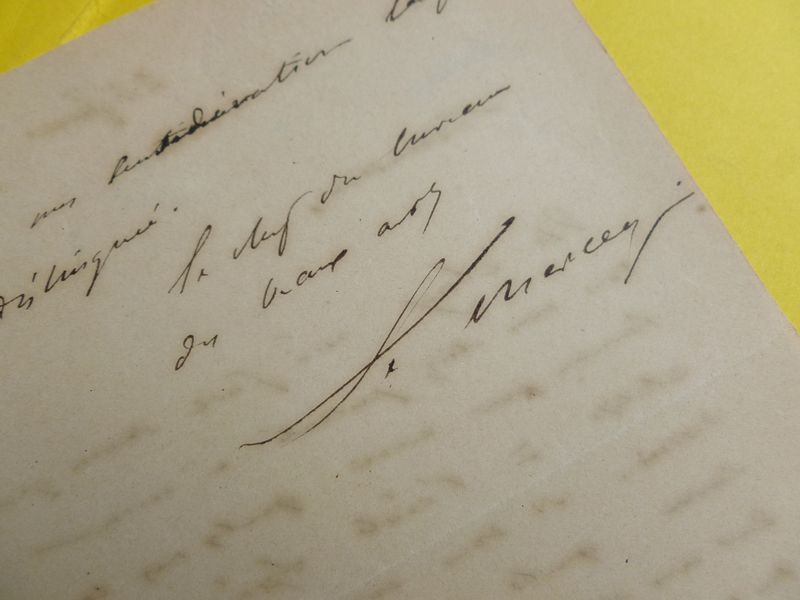 ma considération
distinguée.
Le chef du bureau
des beaux arts
F. Mercey